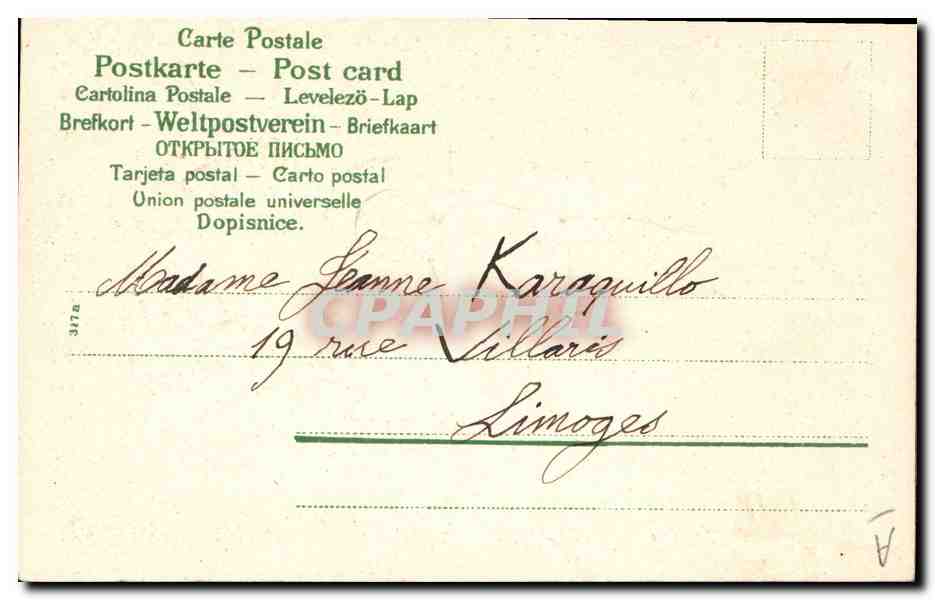 Carte Postale
Postkarte – Post card
Cartolina Postale — Levelezö-Lap
Brefkort - Weltpostverein - Briefkaart
ОТКРЫТОЕ ПИСЬМО
Tarjeta postal — Carto postal
Union postale universelle
Dopisnice.
Madame Jeanne Karaquillo
CPAPHIL
19 rue Villaris
Limoges
317a
A